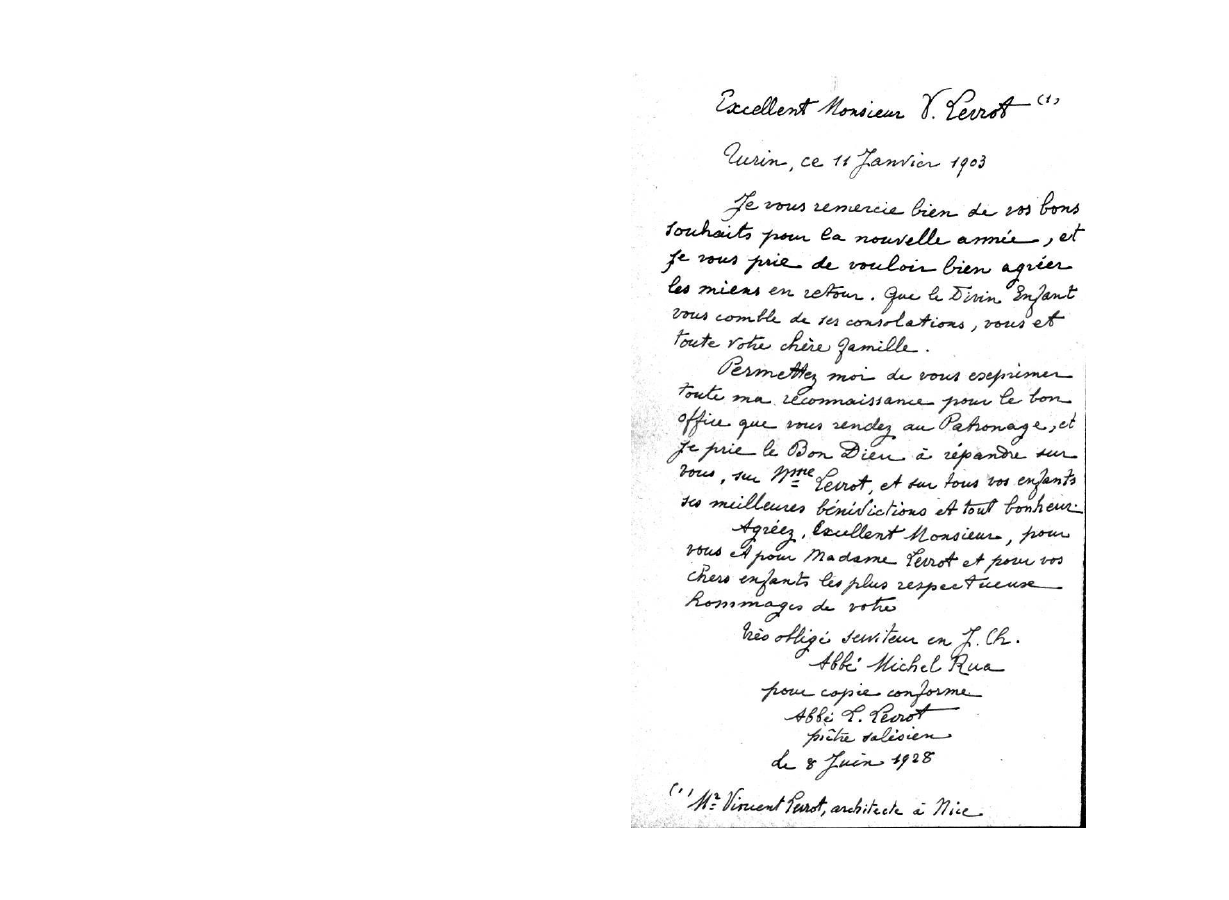 Excellent Monsieur V. Levrot (1)
Turin, ce 11 Janvier 1903
Je vous remercie bien de vos bons
souhaits pour la nouvelle année, et
je vous prie de vouloir bien agréer
les miens en retour. Que le Divin Enfant
vous comble de ses consolations, vous et
toute votre chère famille.
Permettez moi de vous exprimer
toute ma reconnaissance pour le bon
office que vous rendez au Patronage, et
je prie le Bon Dieu à répandre sur
vous, sur Mme Levrot, et sur tous vos enfants
ses meilleures bénédictions et tout bonheur.
Agréez, Excellent Monsieur, pour
vous et pour Madame Levrot et pour vos
chers enfants les plus respectueuse
hommages de votre
très obligé serviteur en J. Ch.
Abbé Michel Rua
pour copie conforme
Abbé L. Levrot
prêtre salésien
le 8 Juin 1928
(1) Mr Vincent Levrot, architecte à Nice